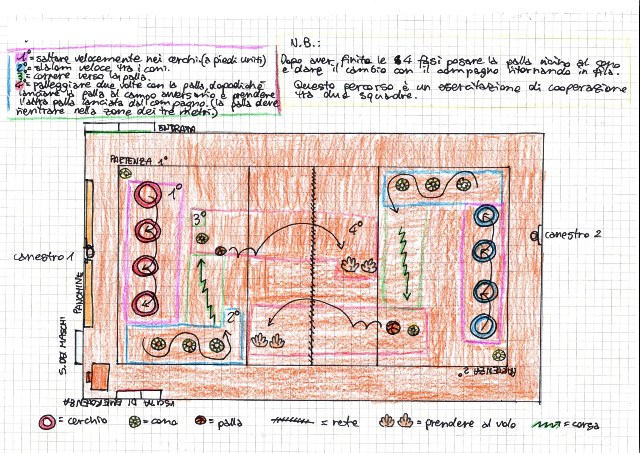 1°= saltare velocemente nei cerchi. (a piedi uniti)
2°= slalom veloce tra i coni.
3°= correre verso la palla.
4°= palleggiare due volte con la palla, dopodiché
lanciare la palla al campo avversario e prendere
l'altra palla lanciata dal compagno. (la palla deve
rientrare nella zona dei tre metri.)
N.B.:
Dopo aver finito le 4 fasi posare la palla vicino al cono
e dare il cambio con il compagno ritornando in fila.
Questo percorso è un esercitazione di cooperazione
tra due squadre.
ENTRATA
PARTENZA 1°
1°
3°
4°
canestro 2
canestro 1
PANCHINE
2°
S. DEI MASCHI
PARTENZA 2°
USCITA DI EMERGENZA
= cerchio
= cono
= palla
= rete
= prendere al volo
= corsa